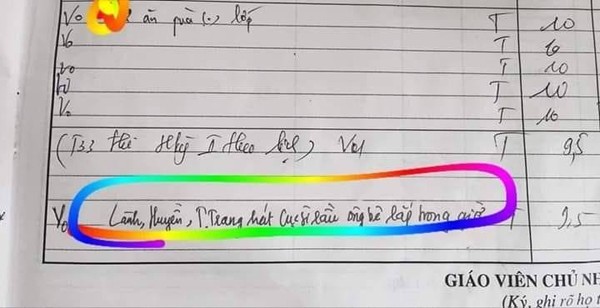 V0 ăn quà (.) lớp T 10
V0 T 10
V0 T 10
V0 T 10
V0 T 10
(T33 thi Học kỳ II theo lịch) V01 T 9,5
V0 Lành, Huyền, T.Trang hát Cục sì lầu ông bê lắp trong giờ T 9,5
GIÁO VIÊN CHỦ NH
(Ký, ghi rõ họ t